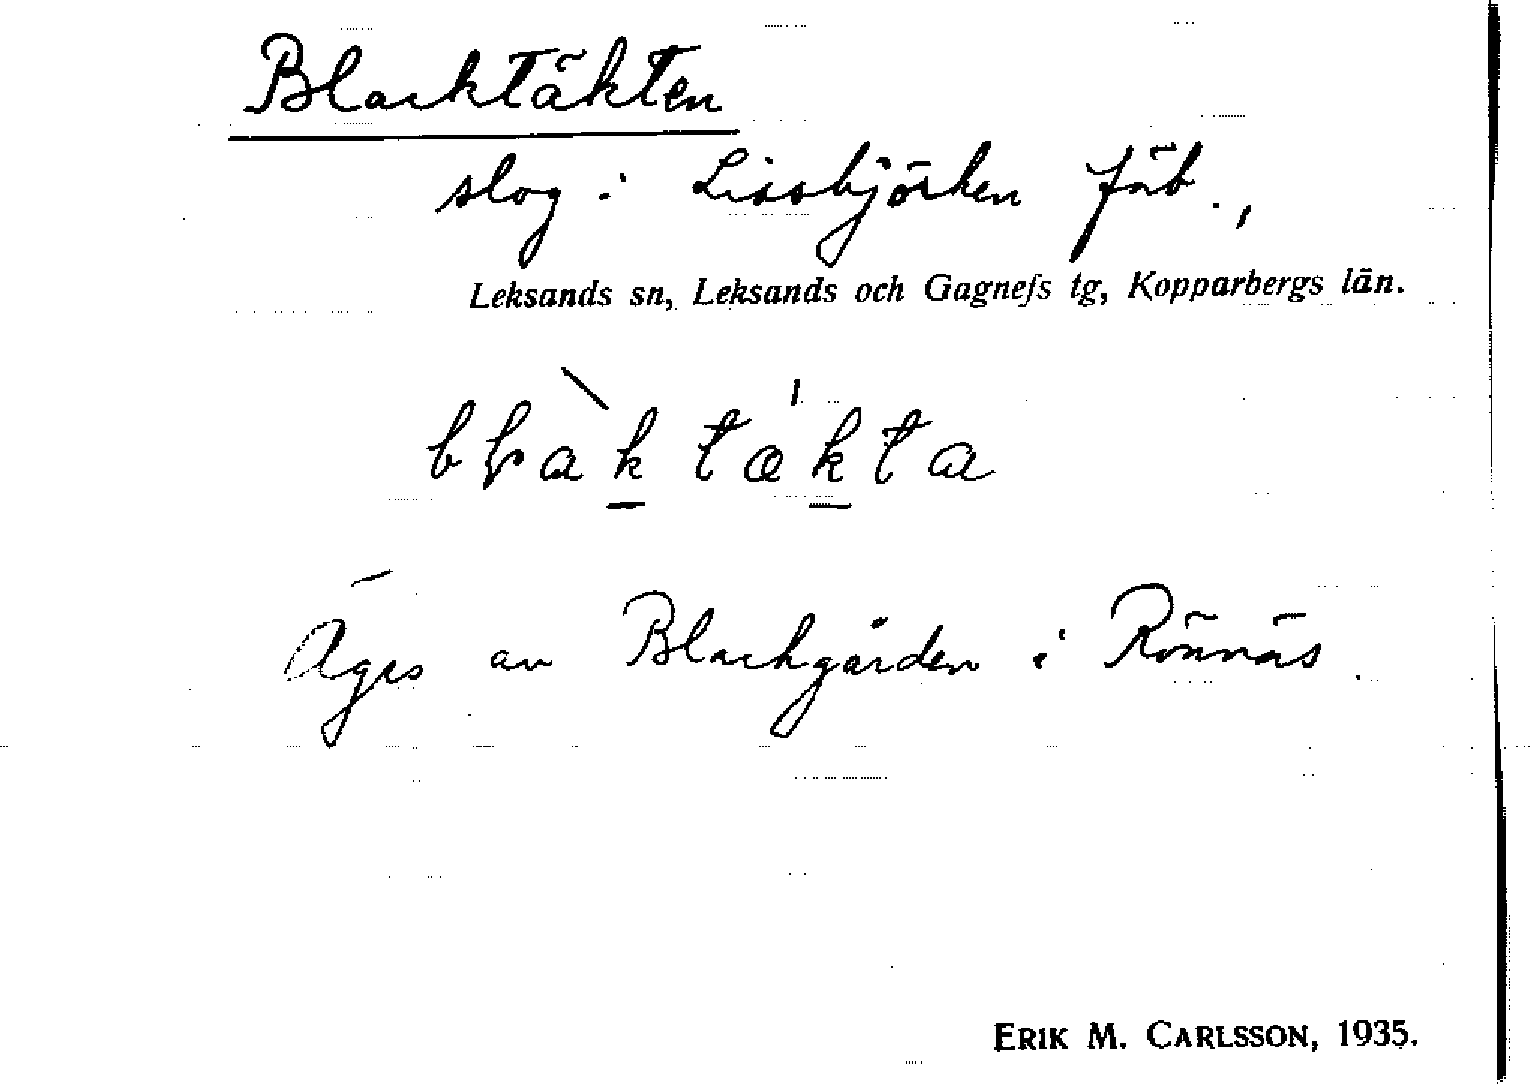 Blacktäkten
slog i Lissbjörken fäb.,
Leksands sn, Leksands och Gagnefs tg, Kopparbergs län.
bɫàk tækta
Äges av Blackgården i Rönnäs.
ERIK M. CARLSSON, 1935.